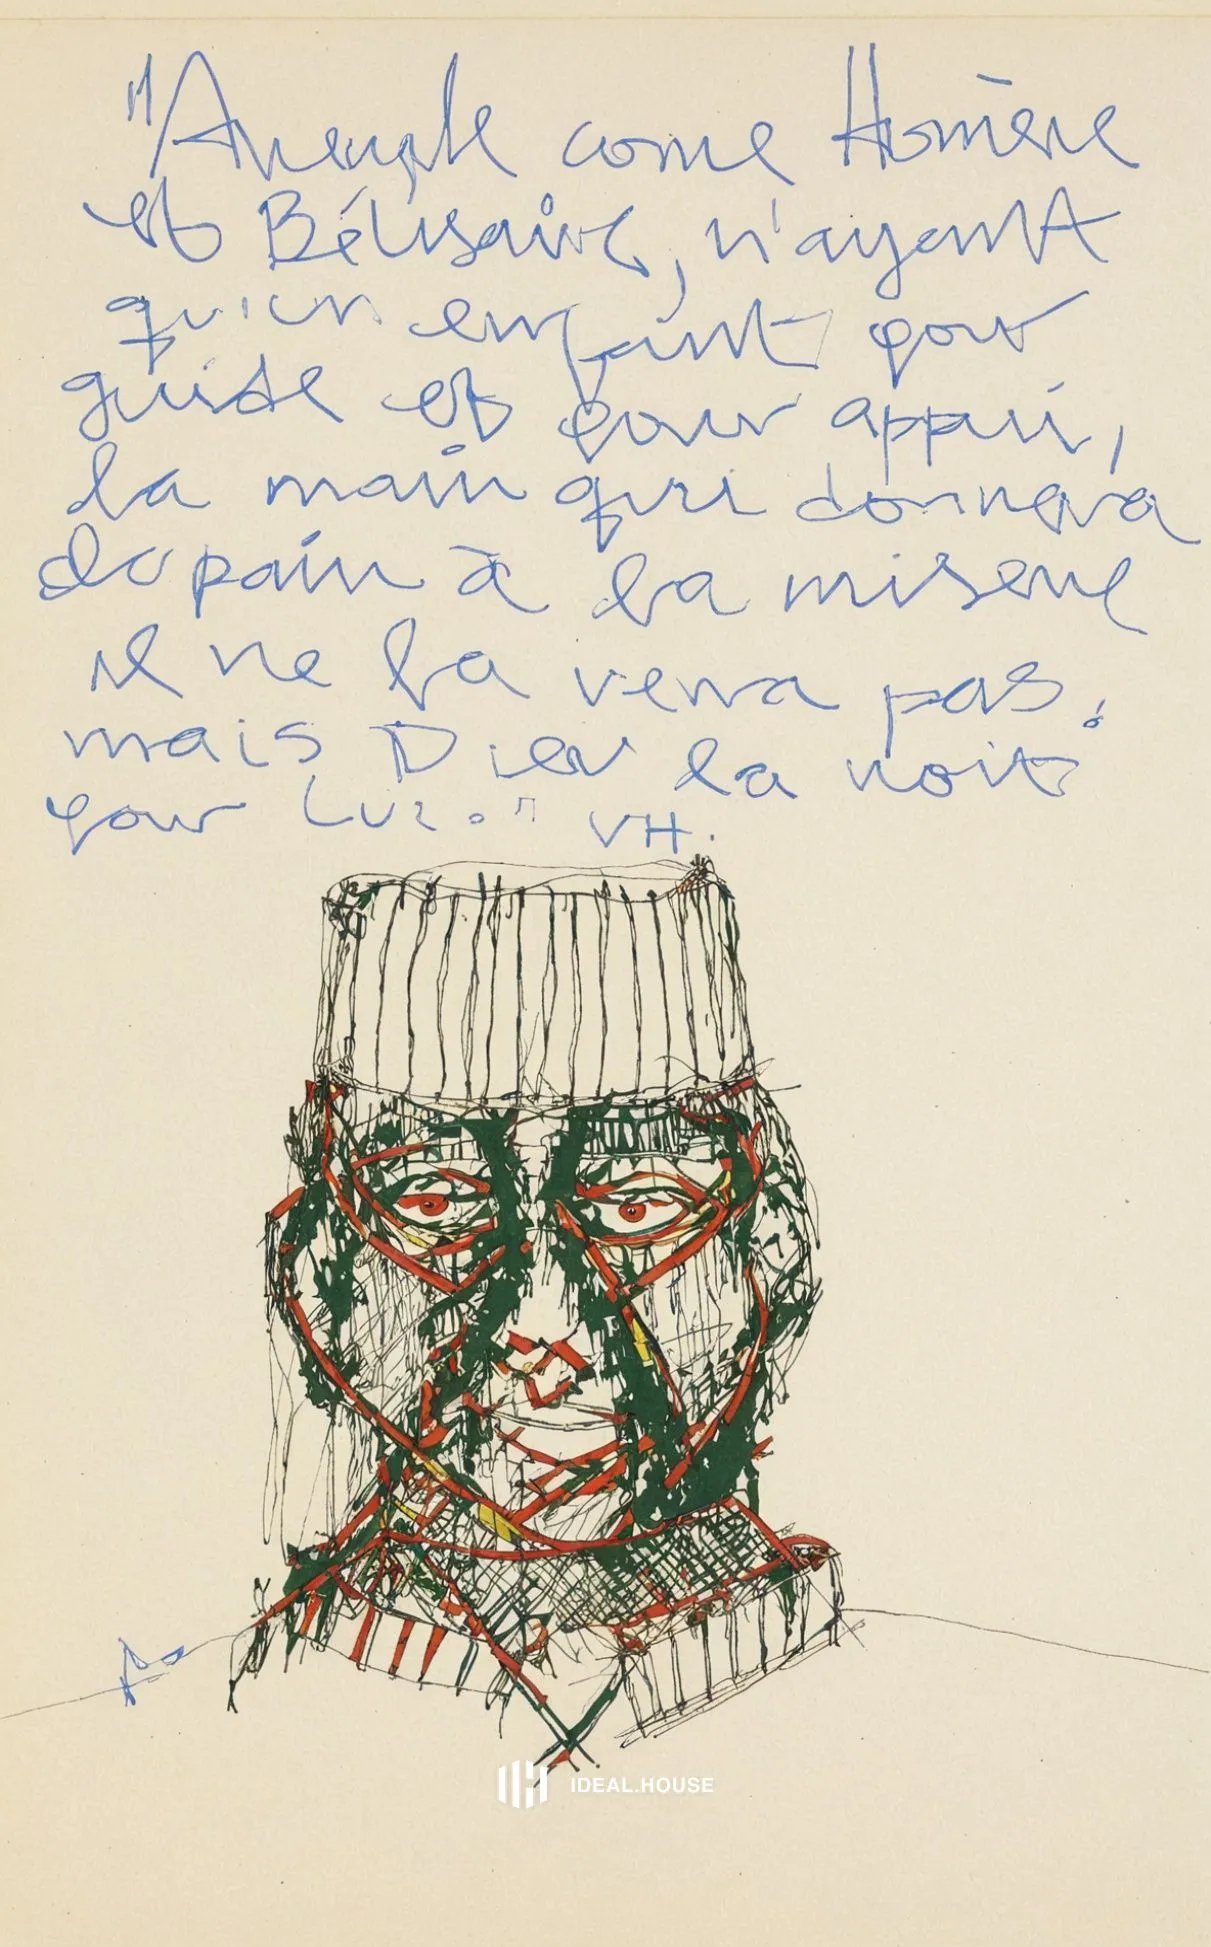 "Aveugle come Homère
et Bélisaire, n'ayant
qu'un enfant pour
guide et pour appui,
la main qui donnera
du pain à la misere
il ne la verra pas!
mais Dieu la voit
pour Lui." VH.
IDEAL.HOUSE